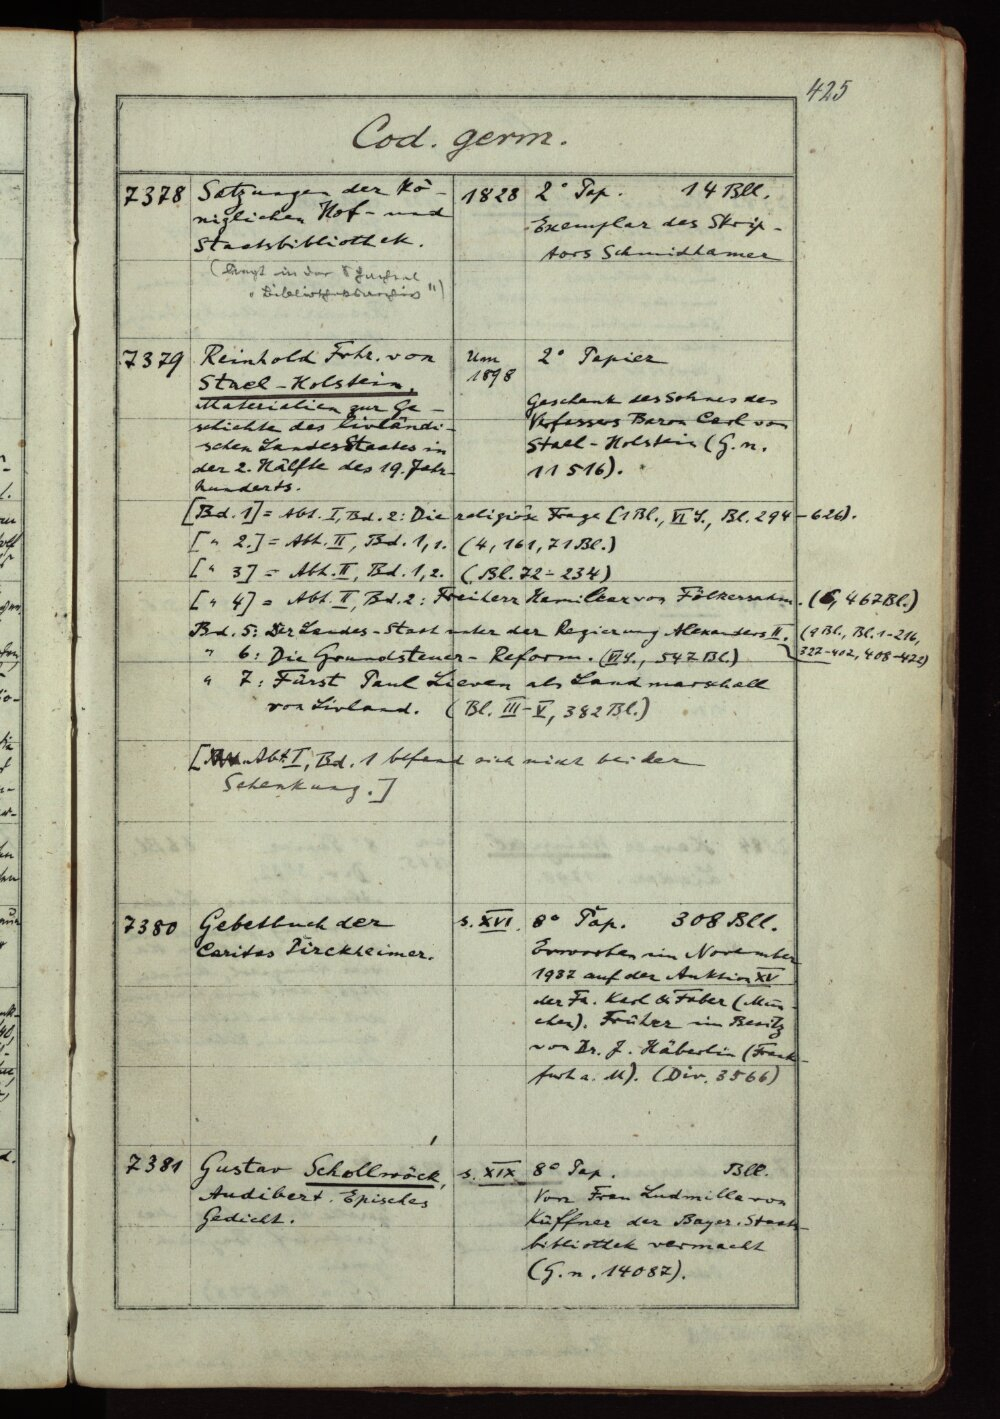 425
Cod. germ.
7378 Satzungen der Kö- 1828 2° Pap. 14 Bll.
niglichen Hof- und Exemplar des Skrip-
Staatsbibliothek. tors Schmidhamer
(liegt in der
7379 Reinhold Frhr. von Um 1898 2° Papier
Stael-Holstein,
Materialien zur Ge- Geschenk des Sohnes des
schichte des livländi- Verfassers Baron Carl von
schen LandesStaates in Stael-Holstein (G.n.
der 2. Hälfte des 19. Jahr- 11516).
hunderts.
[Bd. 1] = Abt. I, Bd. 2: Die religiöse Frage [1 Bl., VI S., Bl. 294-626).
[" 2.] = Abt. II, Bd. 1,1. (4, 161, 71 Bl.)
[" 3] = Abt. II, Bd. 1,2. (Bl. 72-234)
[" 4] = Abt. II, Bd. 2: Freiherr Hamilcar von Fölkersahm. (6, 467 Bl.)
Bd. 5: Der Landes-Staat unter der Regierung Alexanders II. (9 Bl., Bl. 1-216,
327-402, 408-422)
" 6: Die Grundsteuer-Reform. (VI S., 547 Bl.)
" 7: Fürst Paul Lieven als Landmarschall
von Livland. (Bl. III-V, 382 Bl.)
[Abt. I, Bd. 1 befand sich nicht bei der
Schenkung.]
7380 Gebetbuch der s. XVI. 8° Pap. 308 Bll.
Caritas Pirckheimer. Erworben im November
1937 auf der Auktion XV
der Fa. Karl & Faber (Mün-
chen). Früher im Besitz
von Dr. J. Häberlin (Frank-
furt a. M). (Div. 3566)
7381 Gustav Schollwöck, s. XIX 8° Pap. Bll.
Audibert. Episches Von Frau Ludmilla von
Gedicht. Küffner der Bayer. Staats-
bibliothek vermacht
(G.n. 14087).